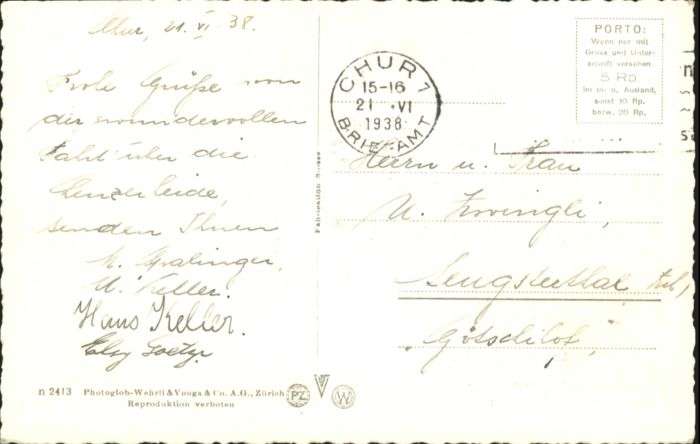 Chur, 21. VI 38.
Frohe Grüße von
der wundervollen
Fahrt über die
Lenzerheide,
senden Ihnen
U. Keller.
Hans Keller.
Elsy
PORTO:
Wenn nur mit
Gruss und Unter-
schrift versehen
5 Rp
im In- u. Ausland,
sonst 10 Rp.
bezw. 20 Rp.
CHUR 1
15-16
21 .VI
1938
BRIEFAMT
Herrn u. Frau
U. Zwingli,
"Götschihof"
n 2413 Photoglob-Wehrli & Vouga & Co. A.G., Zürich
Reproduktion verboten
PZ
W